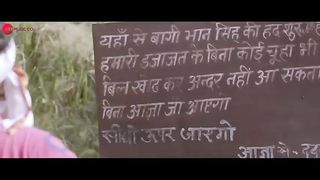 ZEE MUSIC CO
यहाँ से बागी भान सिंह की हद शुरू
हमारी इजाजत के बिना कोई चूहा भी
बिल खोद कर अन्दर नहीं आ सकता
बिना आज्ञा जा आएगा
सीधो उपर जाएगो
आज्ञा से - दद्दा